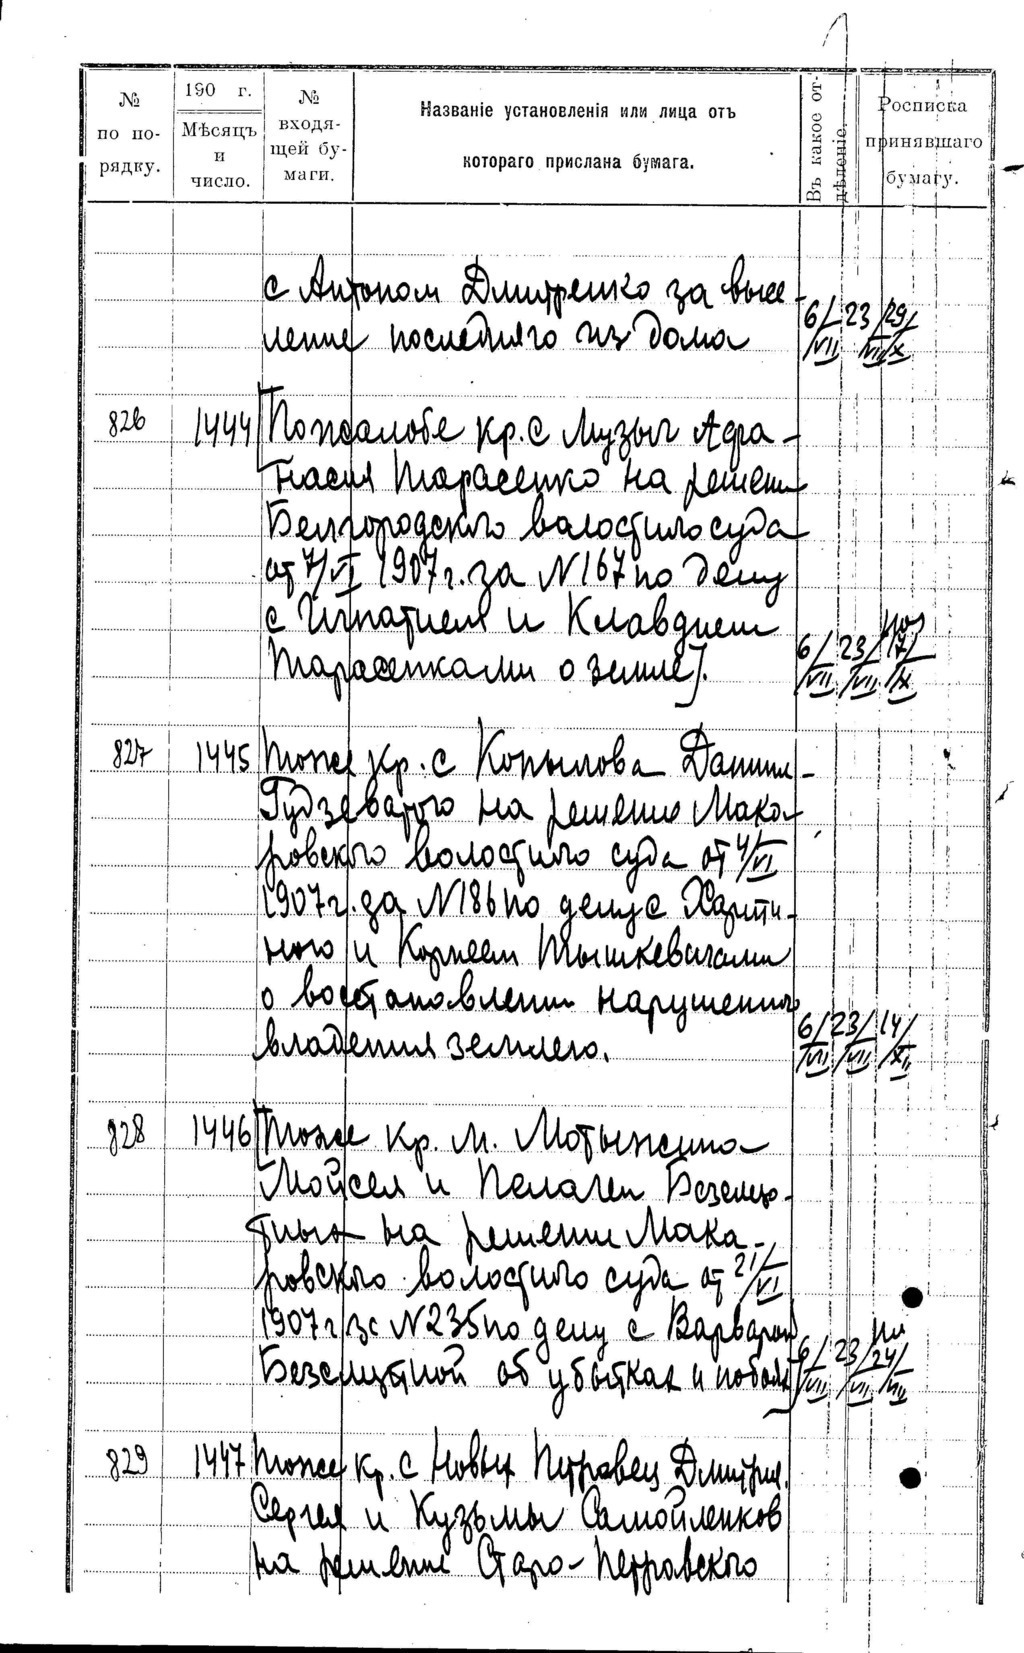 № по по- рядку.
190 г. Мѣсяцъ и число.
№ входя- щей бу- маги.
Названіе установленія или лица отъ
котораго прислана бумага.
Въ какое от- дѣленіе.
Росписка принявшаго бумагу.
с Антоном Дмитренко за высе-
ление последняго из дома 6/VII 23/VII 29/X
826 1444 [По жалобе кр. с Музыч Афа-
насия Тарасенко на решение
Белгородского волостного суда
от 7/VI 1907 г. за N 167 по делу
с Игнатием и Клавдием
Тарасенками о земле]. 6/VII 23/VII 17/IX
827 1445 Тоже кр. с Копылова Даниил
Гудзеватого на решение Мака-
ровского волостного суда от 4/VI
1907 г. за N 186 по делу с Харити-
ного и Корнеем Тышкевичами
о востановлении нарушенного
владения землего. 6/VII 23/VII 14/XI
828 1446 [Тоже кр. м. Мотыжина
Мойсея и Пелагеи
на решение Мака-
ровского волостного суда от 21/VI
1907 г за N 235 по делу с Варварой
об убытках и побоях] 6/VII 23/VII 24/VIII
829 1447 Тоже кр. с Новых Петровец Дмитрия,
Сергея и Кузьмы Самойленков
на решение Старо-Петровского